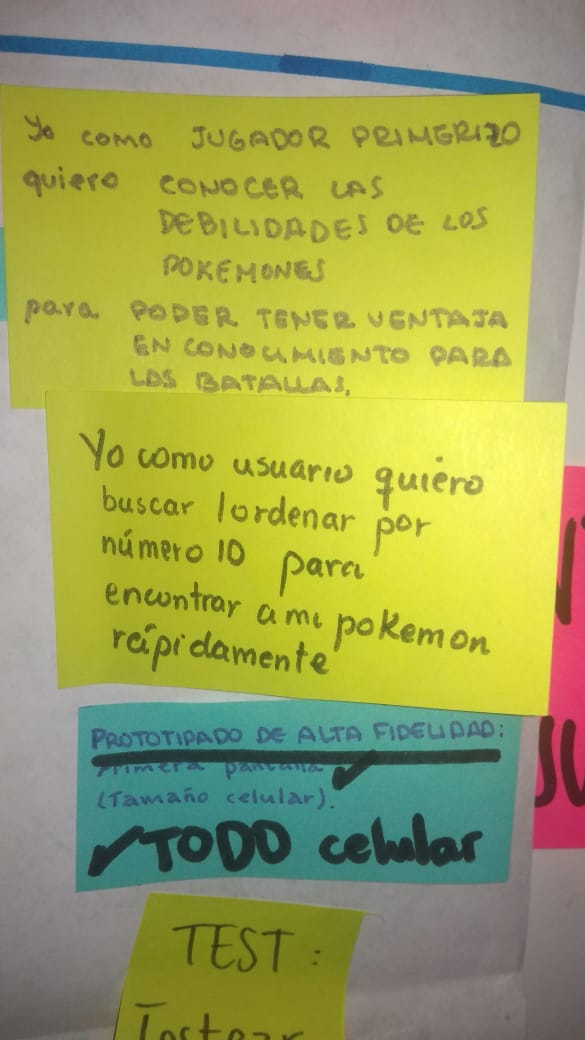 Yo como JUGADOR PRIMERIZO
quiero CONOCER LAS
DEBILIDADES DE LOS
POKEMONES
para PODER TENER VENTAJA
EN CONOCIMIENTO PARA
LAS BATALLAS.
Yo como usuario quiero
buscar /ordenar por
número ID para
encontrar a mi pokemon
rápidamente
PROTOTIPADO DE ALTA FIDELIDAD:
Primera pantalla
(Tamaño celular).
✓TODO celular
TEST:
Testear